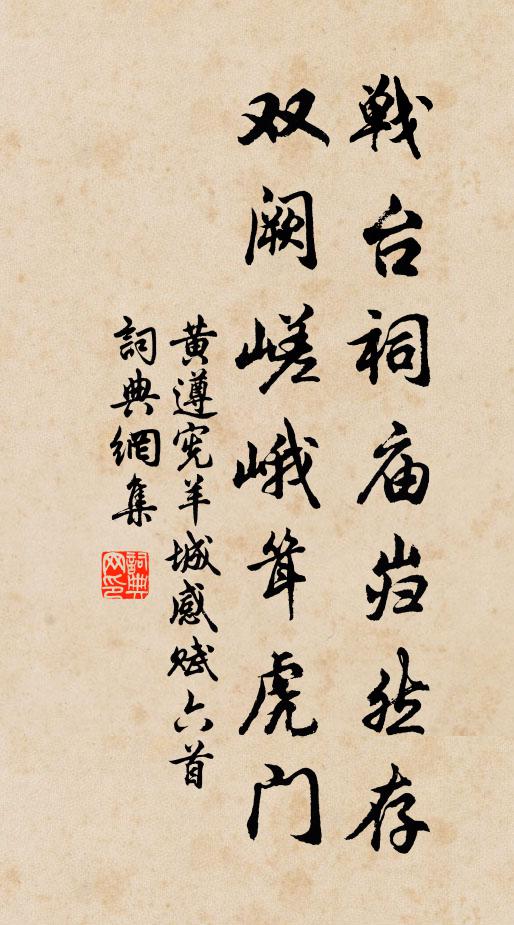 戦台祠庙岿然存
双阙嵯峨耸虎门
黄遵宪羊城感赋六首
詞典網集
詞典网印